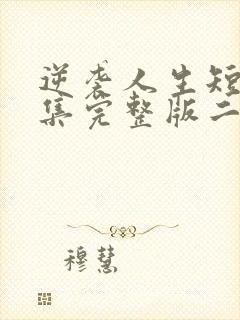 逆袭人生短
集完整版二
穆慧